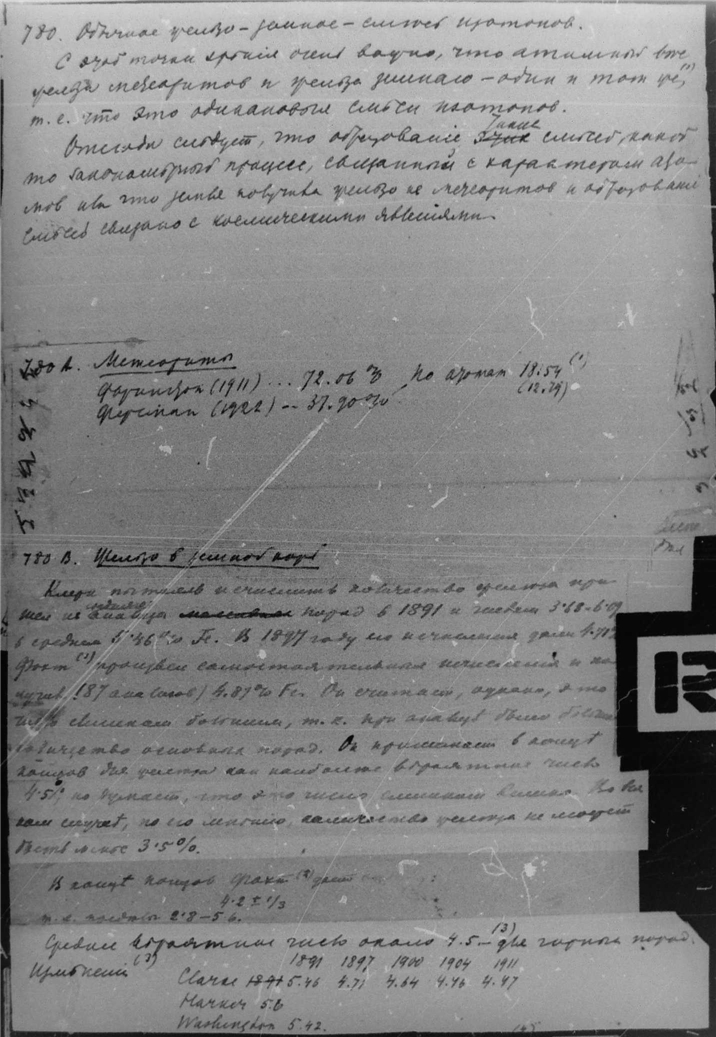 780. Обычное железо – земное – смесь изотопов.
С этой точки зрения очень важно, что атомный вес
железа метеоритов и железа земного – один и тот же, (1)
т.е. что это одинаковые смеси изотопов.
Отсюда следует, что образование таких смесей, какой
то закономерный процесс, связанный с характером ато-
мов или что земля получила железо из метеоритов и образование
смесей связано с космическими явлениями.
780 А. Метеориты
Фаррингтон (1911) ... 72.06% По атомам 18.54 (1)
Ферсман (1922) -- 37.90%. (12.79)
780 В. Железо в земной коре
Кларк пытаясь исчислить количество железа при-
шел из анализа порód в 1891 и
в среднем 5.46% Fe. В 1897 году его исчисления дали 4.71%
Фохт (2) произвел самостоятельные исчисления и по-
лучил (87 анализов) 4.87% Fe. Он считает, однако, это
число слишком большим, т.к. при анализе было большое
количество основных пород. Он принимает в конце
концов для железа как наиболее вероятное число
4.5%, но думает, что это число слишком велико. Во вся-
ком случае, по его мнению, количество железа не может
быть менее 3.5%.
В конце концов Фохт (2) дает
4.2 ± 1/3
т.е. пределы 2.8–5.6.
Среднее вероятное число около 4.5 – для горных пород. (3)
Изменений (3) 1891 1897 1900 1904 1911
Clarke 5.46 4.71 4.64 4.46 4.47
5.6
Washington 5.42.